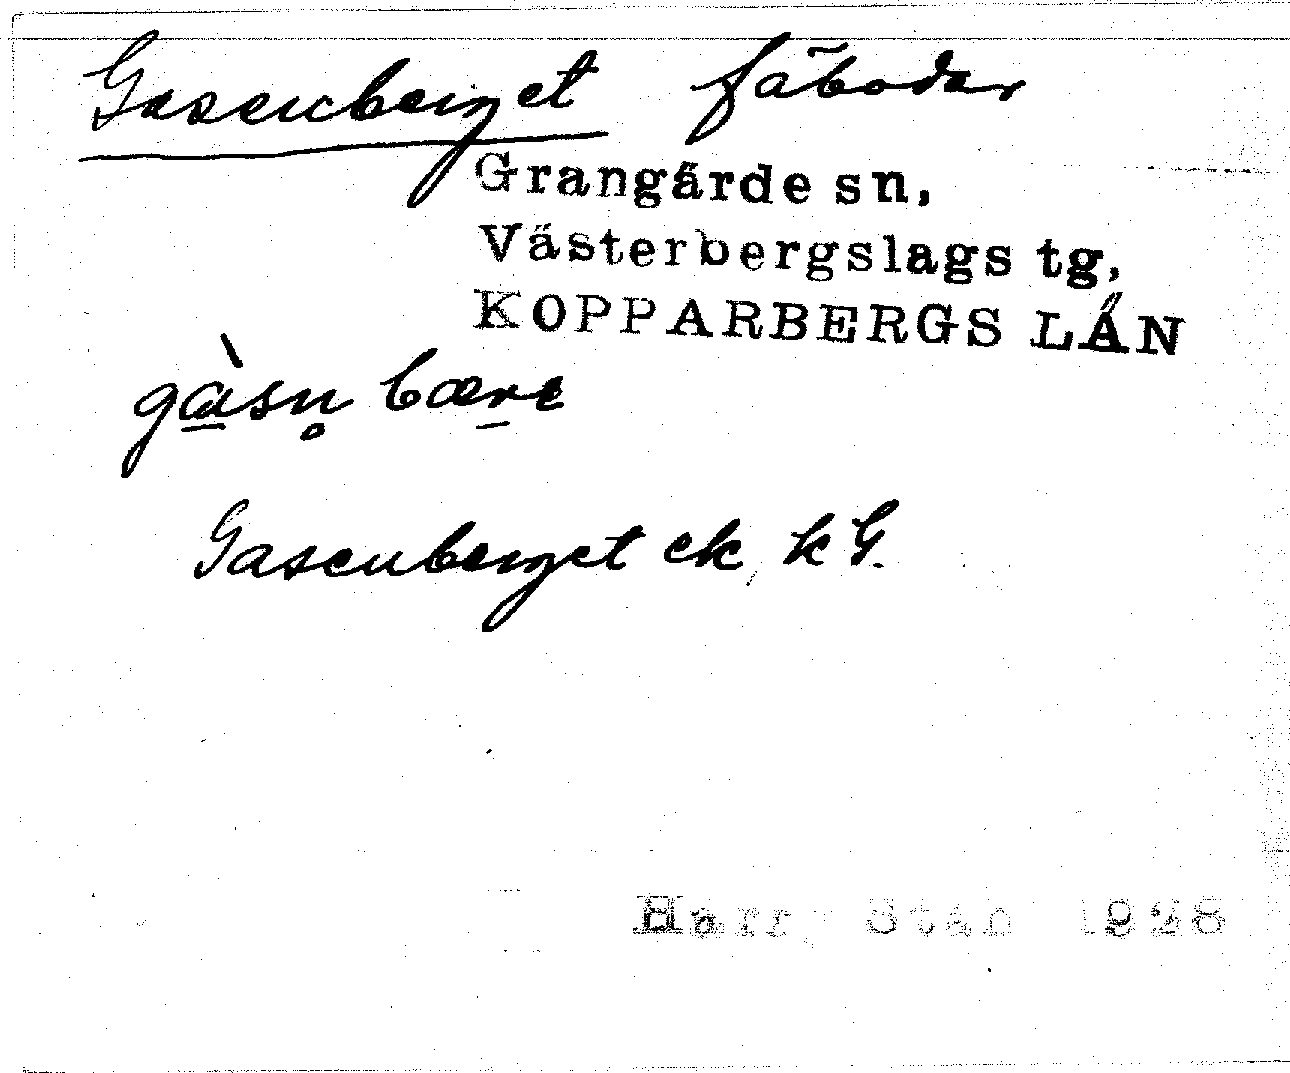 Gasenberget fäbodar
Grangärde sn,
Västerbergslags tg,
KOPPARBERGS LÄN
gàsn̥ bære
Gasenberget ek, k G.
Harry Ståh 1928